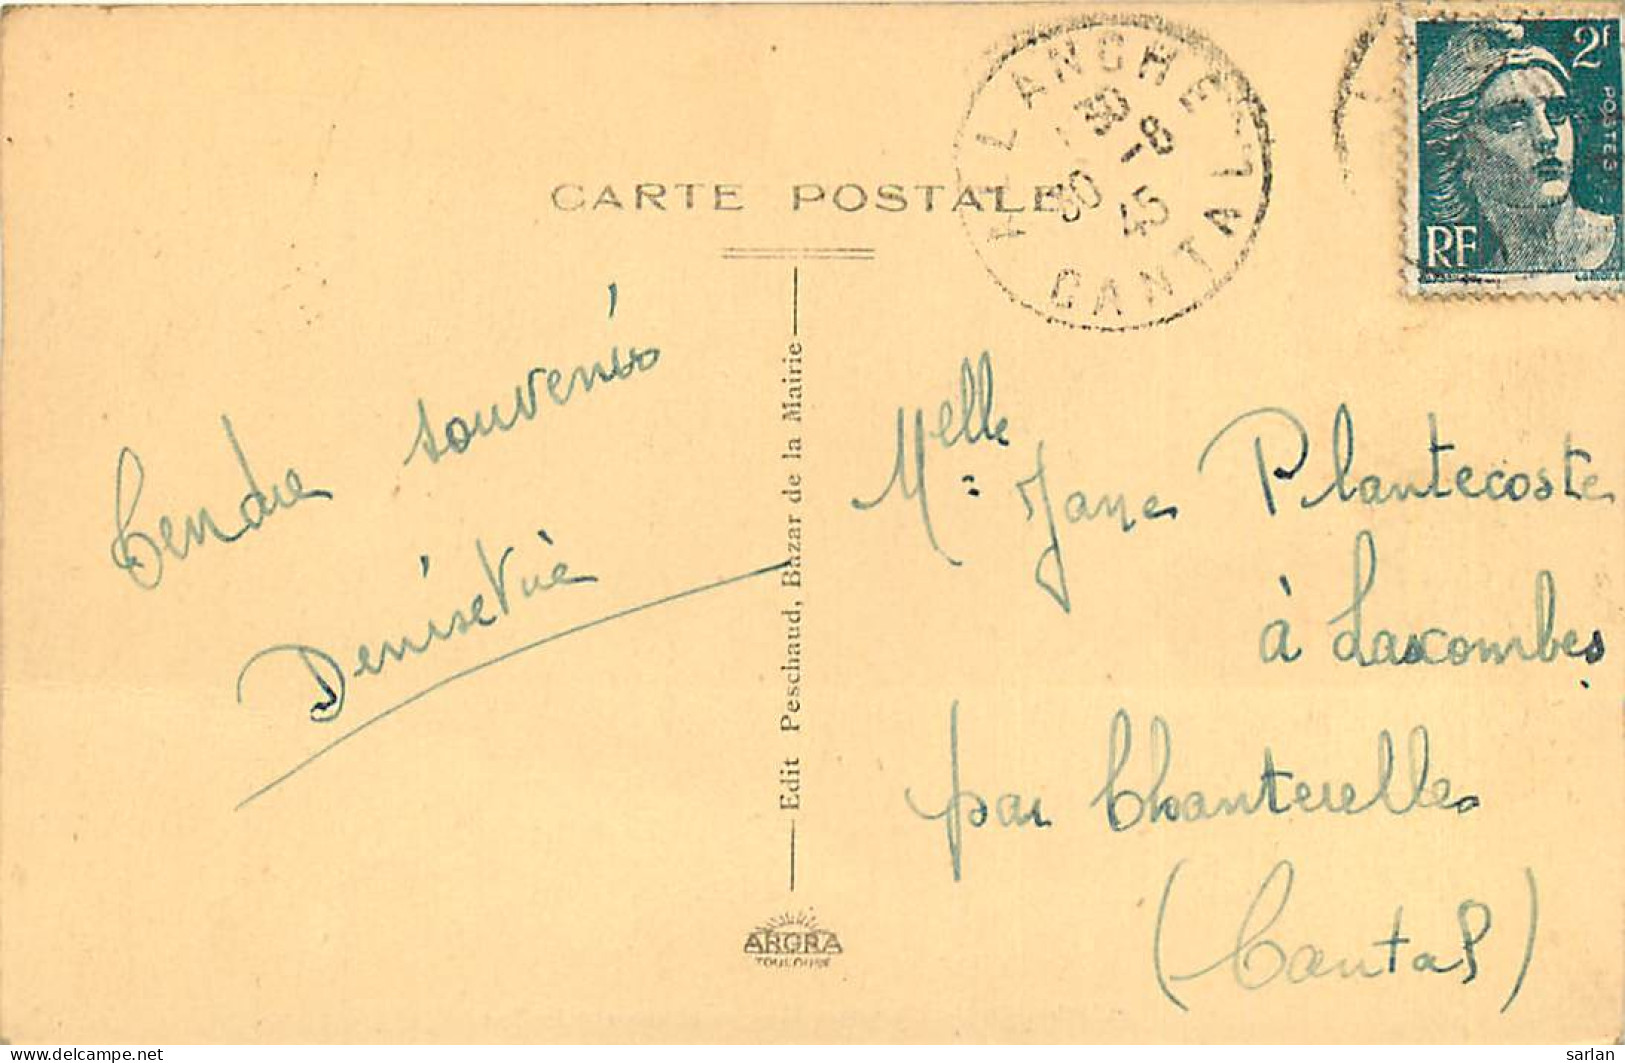 CARTE POSTALE
ALLANCHE
30 - 8
45
CANTAL
2f
POSTES
RF
Tendre souvenir
Denise Vié
Edit Peschaud, Bazar de la Mairie
ARGRA
TOULOUSE
Melle Jane Plantecoste
à Lascombes
par Chanterelle
(Cantal)
delcampe.net
sarlan